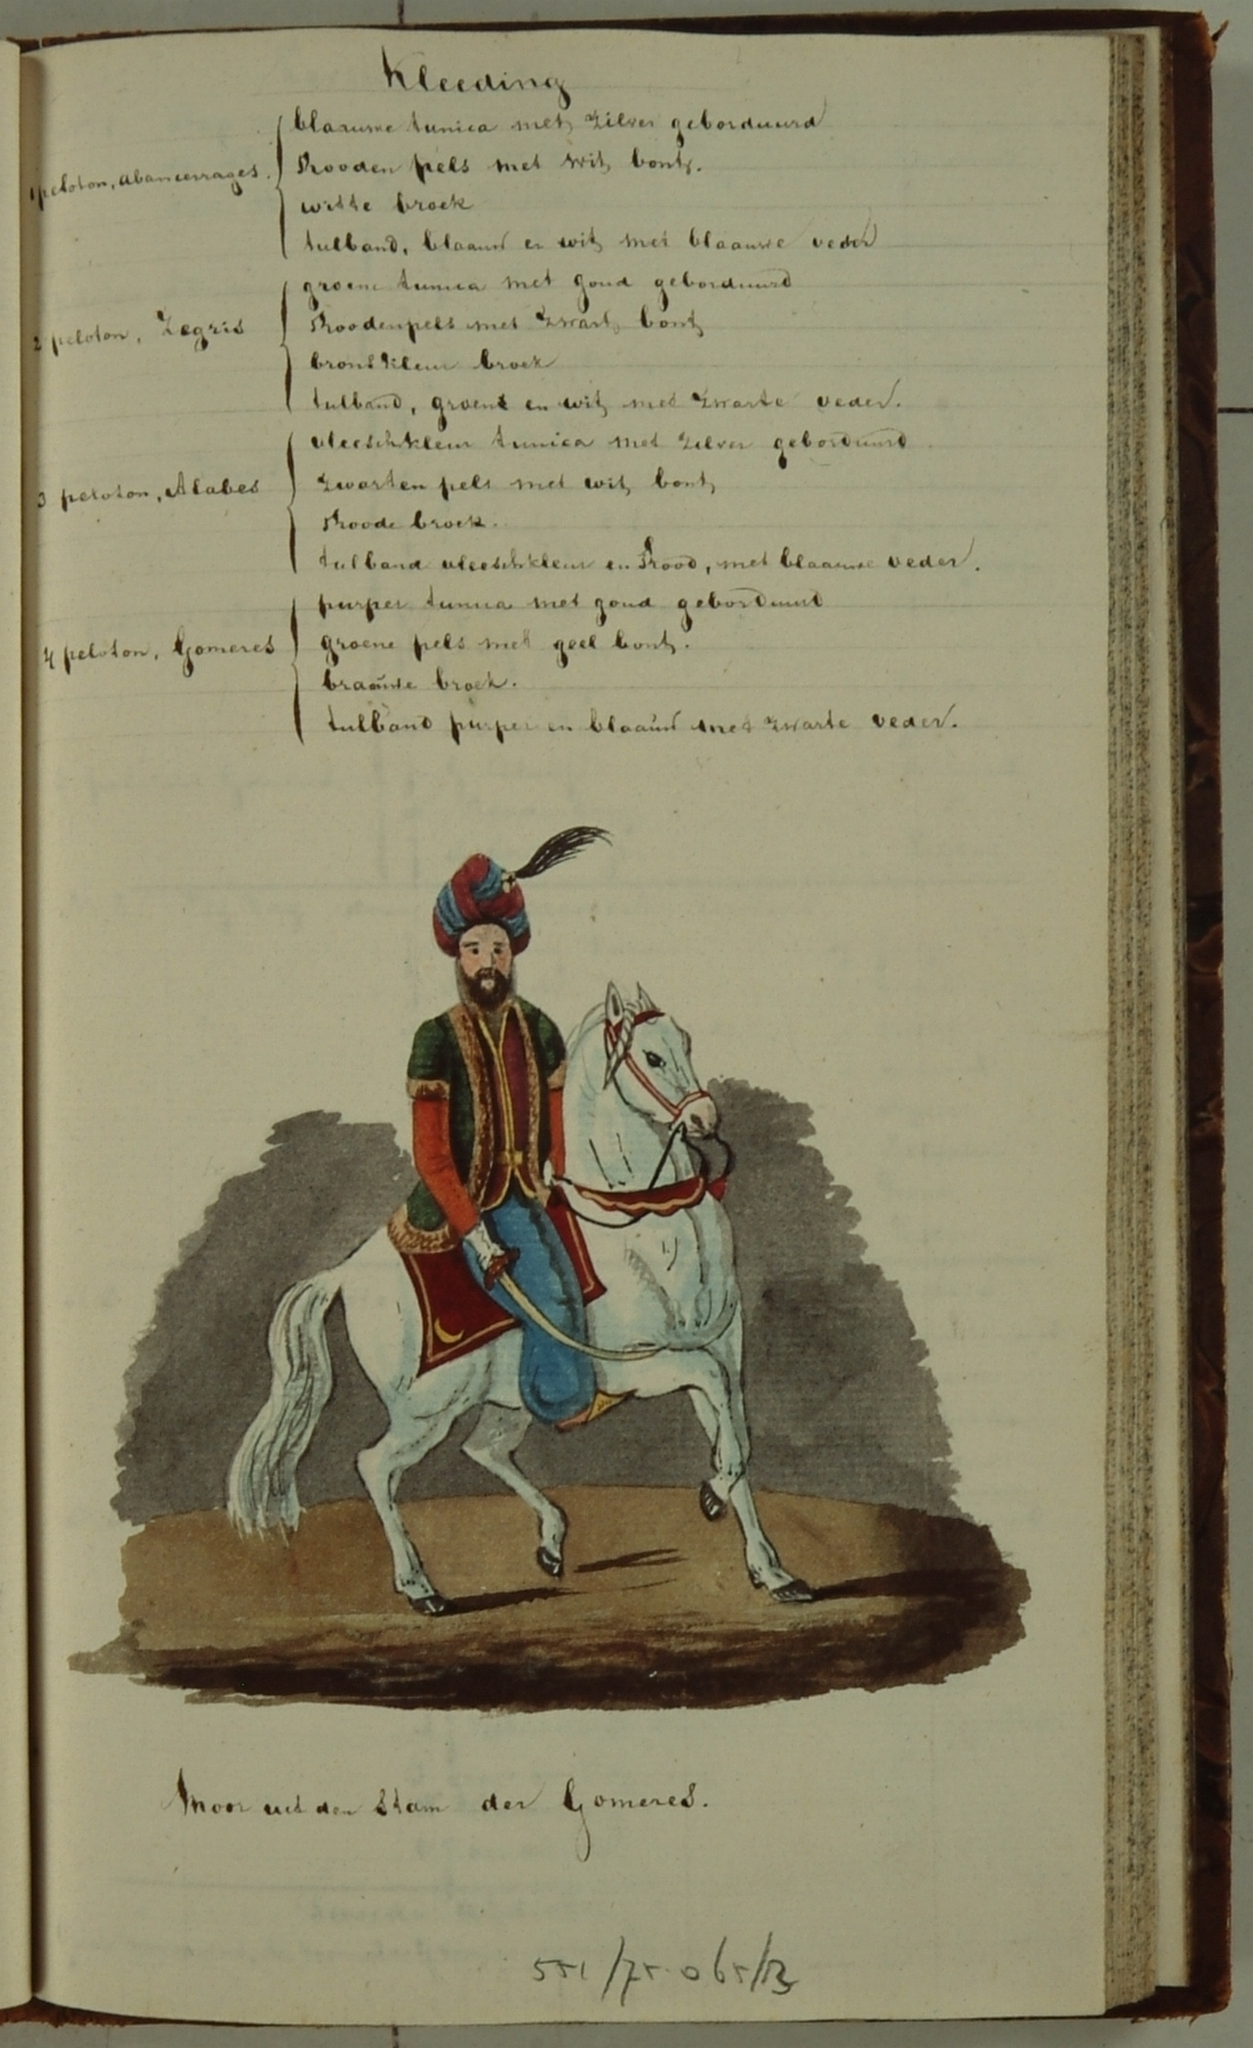 Kleeding
1 peloton, abancerrages.
blaauwe tunica met zilver geborduurd
Rooden pels met wit bont.
witte broek
tulband, blaauw en wit met blaauwe veder
2 peloton, Zegris
groene tunica met goud geborduurd
Roodenpels met zwart bont
bronskleur broek
tulband, groene en wit met zwarte veder.
3 peloton, Alabes
vleeschkleur tunica met zilver geborduurd
Zwarten pels met wit bont
Roode broek.
tulband vleeschkleur en Rood, met blaauwe veder.
4 peloton, Gomeres
purper tunica met goud geborduurd
groene pels met geel bont.
braauwe broek.
tulband purper en blaauw met zwarte veder.
Moor uit den Stam der Gomeres.
551/75.065/B